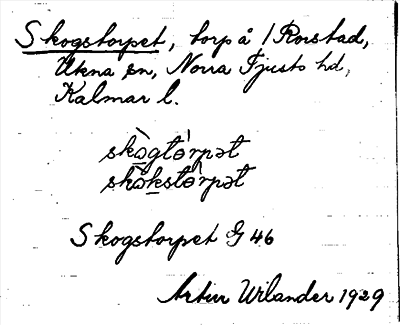 Skogstorpet, torp å /Rorstad,
Ukna sn, Norra Tjusts hd,
Kalmar l.
skògtòrpət
skòkstòrpət
Skogstorpet G 46
Artur Wilander 1929